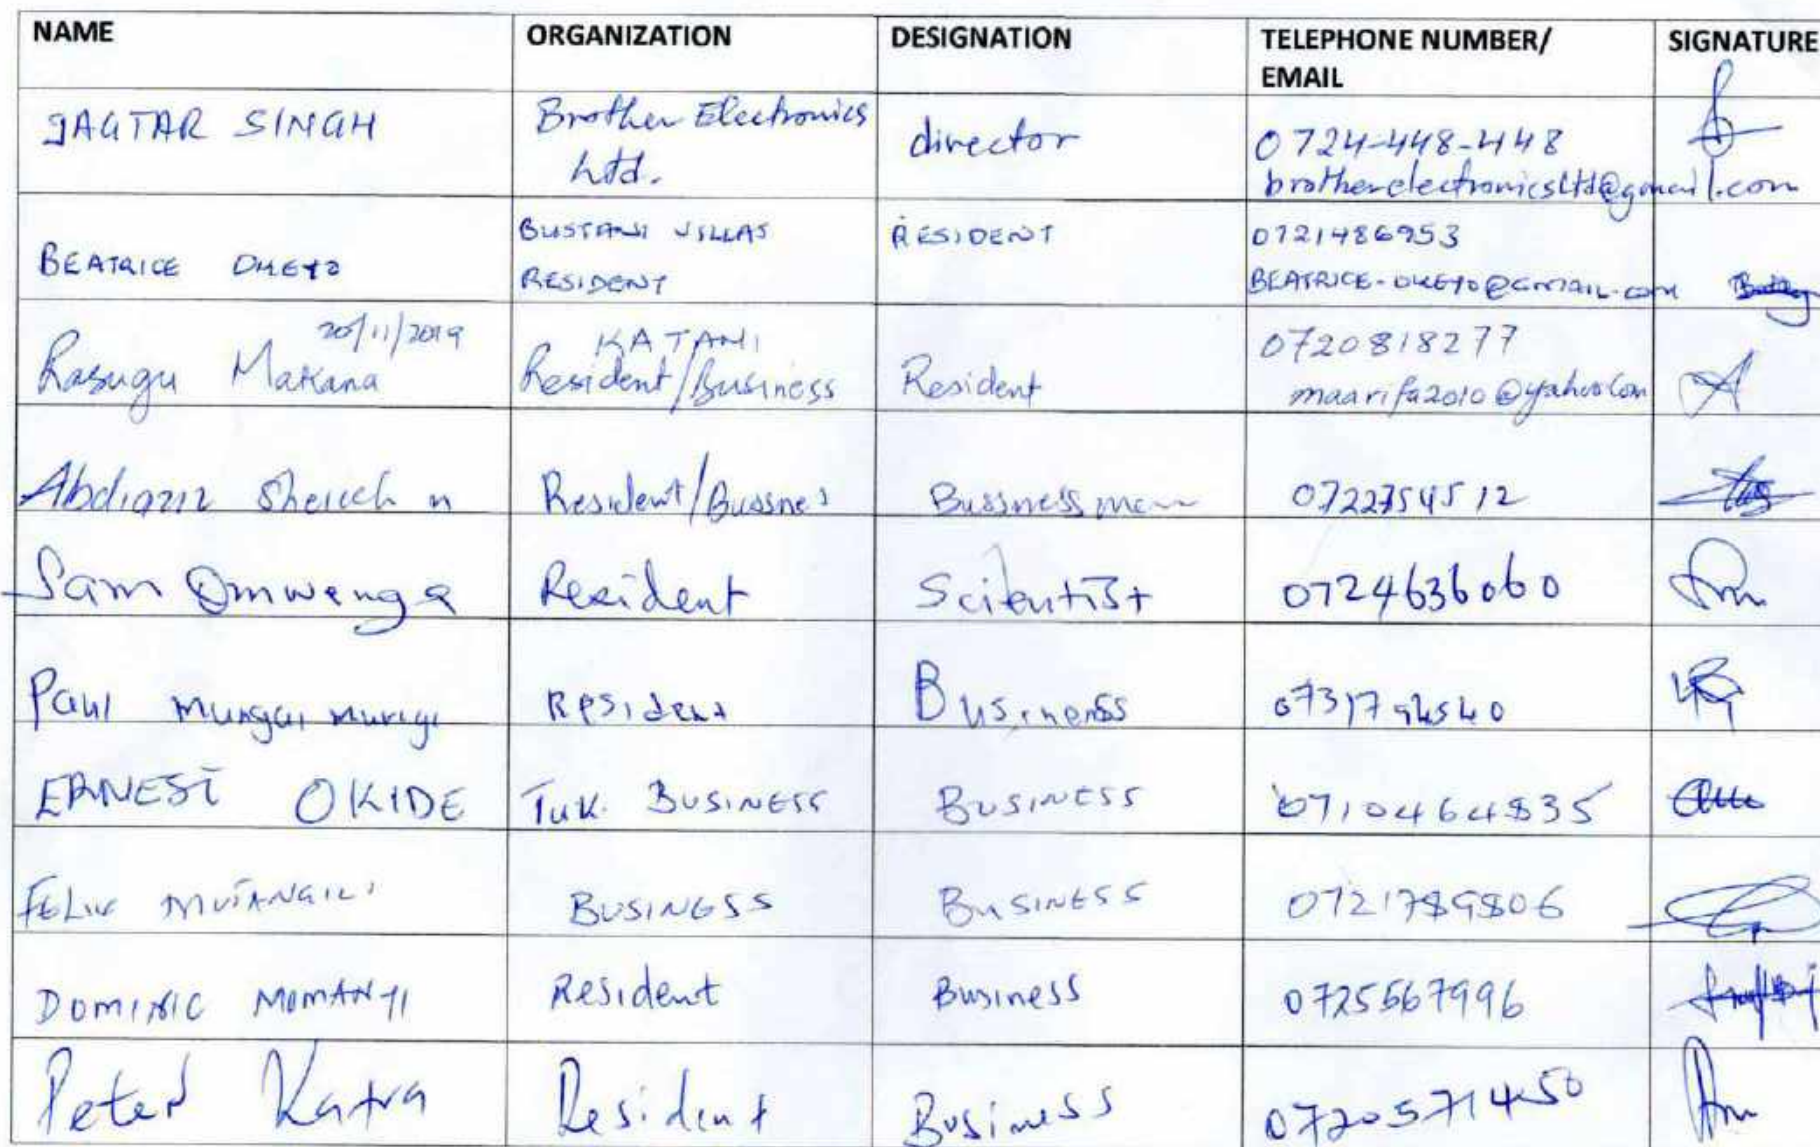 NAME ORGANIZATION DESIGNATION TELEPHONE NUMBER/ SIGNATURE
EMAIL
JAGTAR SINGH Brother Electronics Ltd. director 0724-448-448
brotherelectronicsltd@gmail.com
BEATRICE OKEYO BUSTANI VILLAS RESIDENT 0721486953
RESIDENT BEATRICE-OKEYO@GMAIL.COM
20/11/2019 KATANI 0720818277
Rasugu Makana Resident/Business Resident maarifa2010@yahoo.com
Abdiaziz Sheikh n Resident/Bussnes Bussnessman 0722754512
Sam Omwenga Resident Scientist 0724636060
Paul Mungai Resident Businenss
ERNEST OKIDE TUK. BUSINESS BUSINESS 0710464835
FELIX MUTANGILI BUSINESS BUSINESS 0721789806
DOMINIC MOMANYI Resident Business 0725567996
Peter Resident Business 0720571450